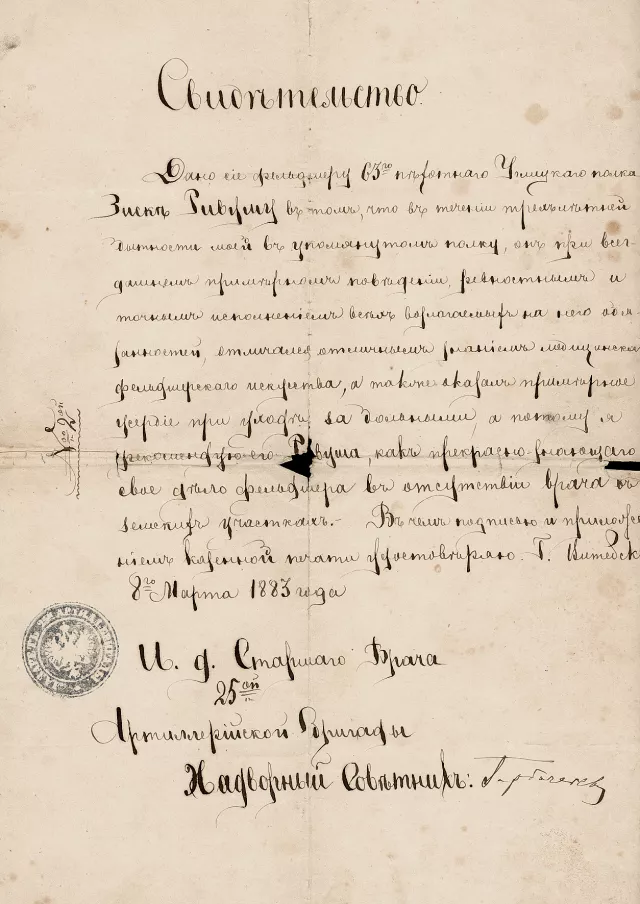 Свидѣтельство.
Дано сіе фельдшеру 63го пѣхотнаго Углицкаго полка
Зискѣ Ривушу въ томъ, что въ теченіи трехлѣтней
бытности моей въ упомянутомъ полку, онъ при всег-
дашнемъ примѣрномъ поведеніи, ревностнымъ и
точнымъ исполненіемъ всѣхъ возлагаемыхъ на него обя-
занностей, отличался отличнымъ знаніемъ медицинска
фельдшерскаго искусства, а также оказалъ примѣрное
усердіе при уходѣ за больными а потому я
рекомендую его Ривуша, какъ прекрасно-знающаго
свое дѣло фельдшера въ отсутствіи врача въ
земскихъ участкахъ.- Въ чемъ подписью и приложе-
ніемъ казенной печати удостовѣряю. Г. Витебск
8го Марта 1883 года
И. д. Старшаго Врача
25ой
Артиллерійской Бригады
Надворный Совѣтникъ: